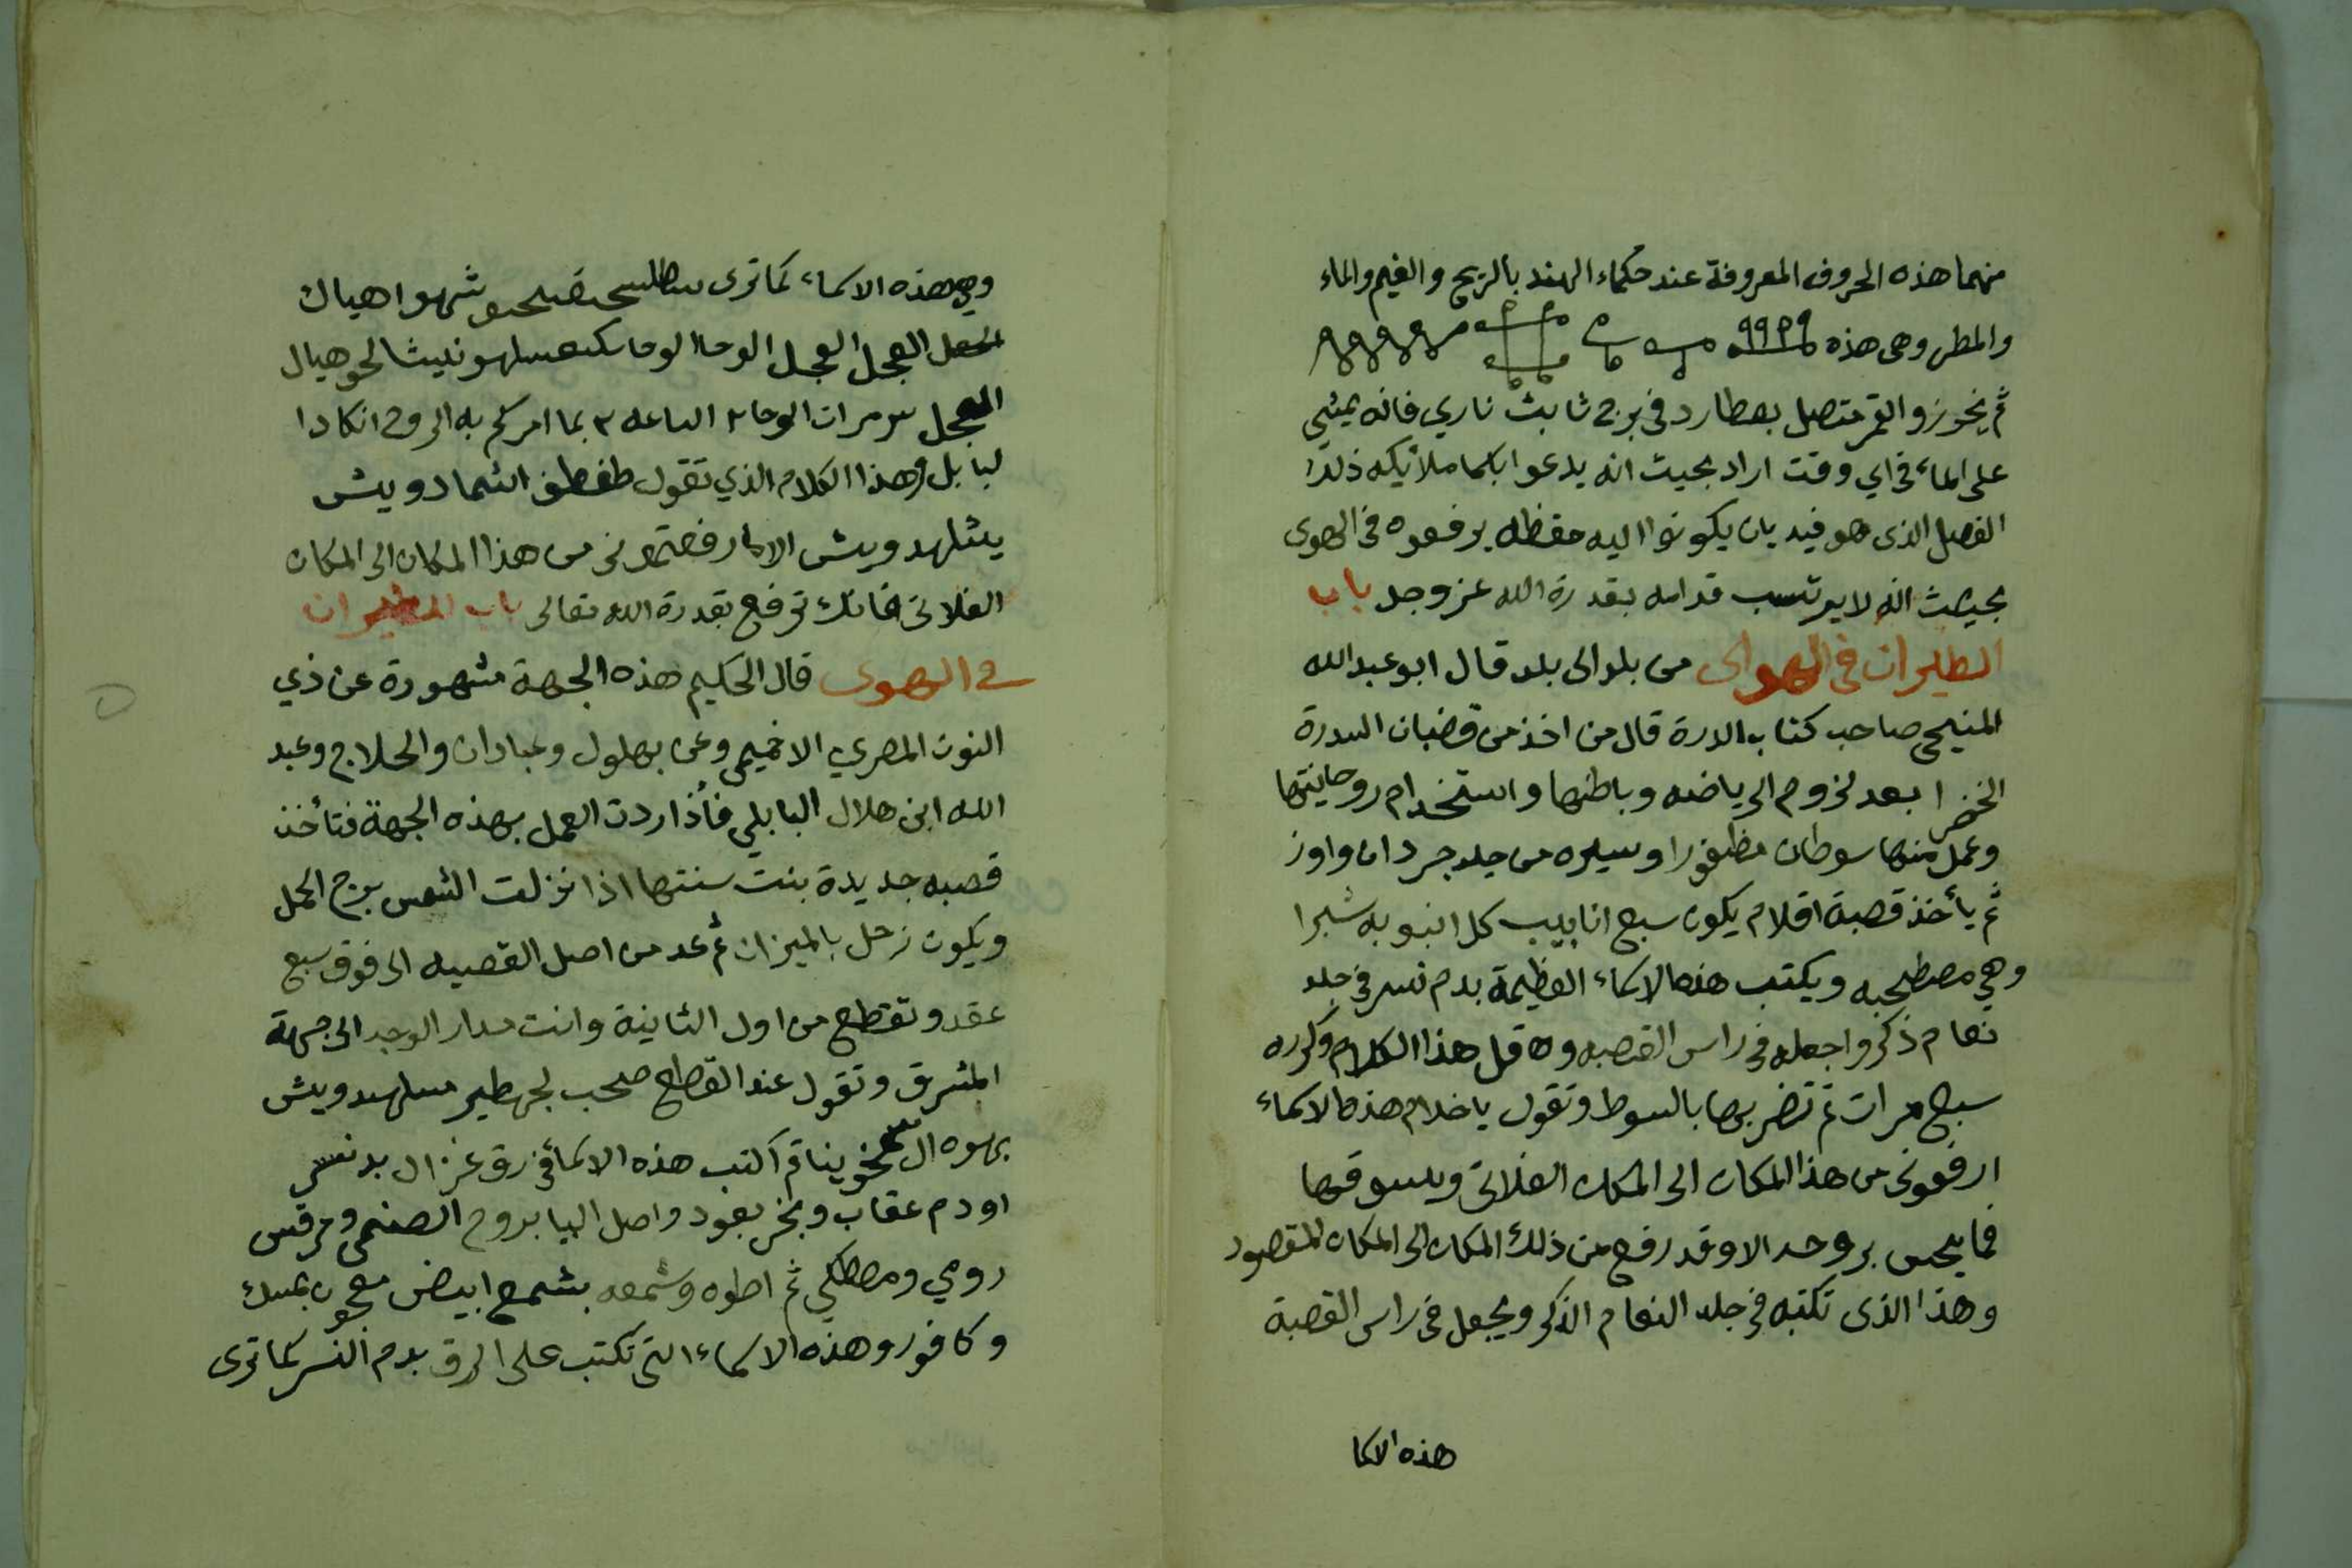 منهما هذه الحروف المعروفة عند حكماء الهند بالريح والغيم والماء
والمطر وهي هذه
ثم يخرز والقمر متصل بعطارد في برج ثابت ناري فانه يمشي
على الماء في اي وقت اراد بحيث انه يدعوا باسما ملائيكه ذلك
الفصل الذي هو فيه بان يكونوا اليه حفظه يرفعوه في الهوى
بحيث انه لا يرتسب قدامه بقدرة الله عز وجل باب
الطيران في الهواى من بلد الى بلد قال ابو عبد الله
صاحب كتاب الدرة قال من اخذ من قضبان السدرة
الخضرا بعد لزوم الرياضه وباطنها واستخدام روحانيتها
وعمل منها سوطان مظفورا وسيره من جلد جردان واوز
ثم يأخذ قصبة اقلام يكون سبع انابيب كل انبوبه شبرا
وهي مصطحبه ويكتب هذه الاسماء العظيمة بدم نسر في جلد
نعام ذكر واجعله في راس القصبه و قل هذا الكلام وكرره
سبع مرات ثم تضربها بالسوط وتقول يا خدام هذه الاسماء
ارفعوني من هذا المكان الى المكان الفلاني ويسوقها
فما يحس بروحه الا وقد رفع من ذلك المكان الى المكان المقصود
وهذا الذي تكتبه في جلد النعام الذكر ويجعل في راس القصبة
هذه الاسما
وهي هذه الاسماء كما ترى شهوا هيال
العجل العجل الوحا الوحا هيال
العجل مرات الوحا ٢ الساعه ٢ بما امركم به الروح انكادا
لبابل وهذا الكلام الذي تقول طفطف اشمادويش
من هذا المكان الى المكان
الفلاني فانك ترفع بقدرة الله تعالى باب الطيران
في الهوى قال الحكيم هذه الجهة مشهورة عن ذي
النون المصري الاخميمي وعن بهلول وعبادان والحلاج وعبد
الله ابن هلال البابلي فأذا ردت العمل بهذه الجهة فتأخذ
قصبه جديدة بنت سنتها اذا نزلت الشمس برج الحمل
ويكون زحل بالميزان ثم عد من اصل القصبه الى فوق سبع
عقد وتقطع من اول الثانية وانت مدار الوجه الى جهة
المشرق وتقول عند القطع صحب لجهطير سلهدويش
ثم اكتب هذه الاسمأ في رق غزال بدم نسر
او دم عقاب وبخر بعود واصل اليبابروح الصنمي ومرقس
رومي ومصطكي ثم اطوه وشمعه بشمع ابيض معجون بمسك
وكافور وهذه الاسماء التي تكتب على الرق بدم النسر كما ترى